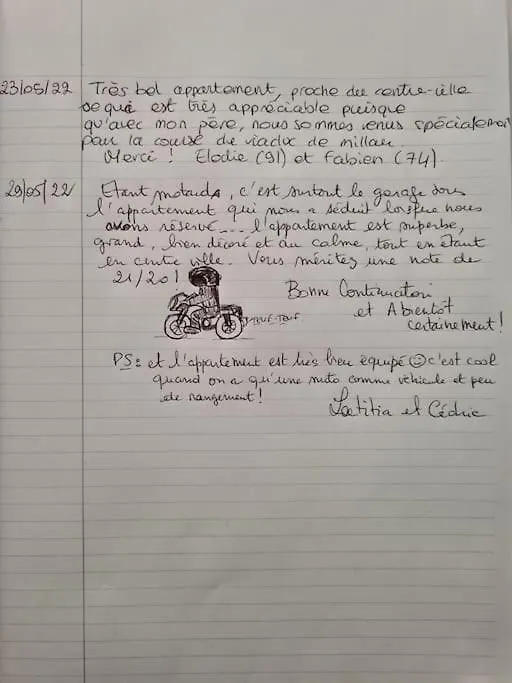 23/05/22 Très bel appartement, proche du centre-ville
ce qui est très appréciable puisque
qu'avec mon père, nous sommes venus spécialement
pour la course du viaduc de millau.
Merci ! Elodie (91) et Fabien (74).
29/05/22 Etant motards, c'est surtout le garage sous
l'appartement qui nous a séduit lorsque nous
avons réservé... l'appartement est superbe,
grand, bien décoré et au calme, tout en étant
en centre ville. Vous méritez une note de
21/20!
TEUF-TEUF
Bonne Continuation
et A bientôt
certainement !
PS: et l'appartement est très bien équipé ☺ c'est cool
quand on a qu'une moto comme véhicule et peu
de rangement !
Laetitia et Cédric